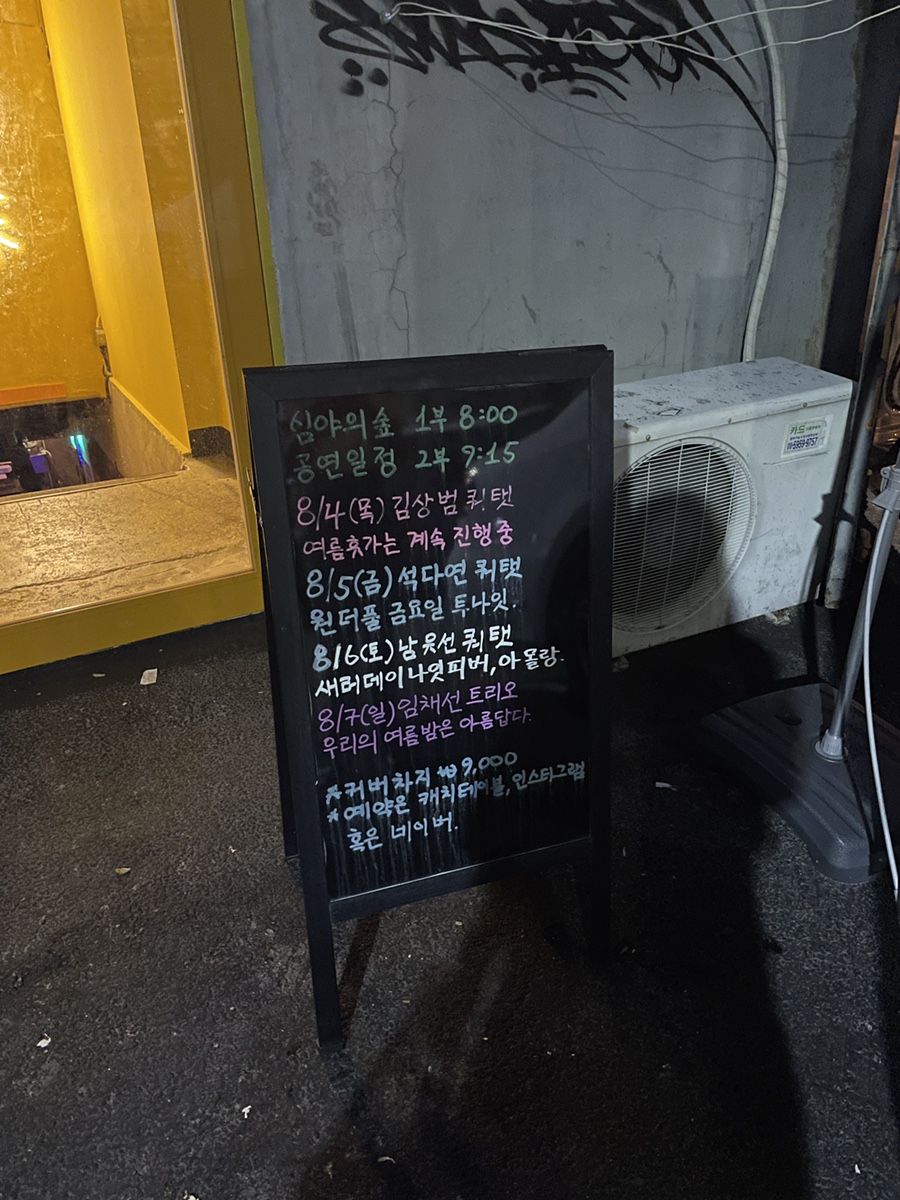 심야의숲 1부 8:00
공연일정 2부 9:15
8/4(목) 김상범 퀴텟
여름휴가는 계속 진행 중
8/5(금) 석다연 퀴텟
원더풀 금요일 투나잇.
8/6(토) 남웃선 퀴텟
새러데이나잇피버, 아 몰랑.
8/7(일) 임채선 트리오
우리의 여름밤은 아름답다.
*커버차지 ₩9,000
*예약은 캐치테이블, 인스타그램
혹은 네이버.
카드